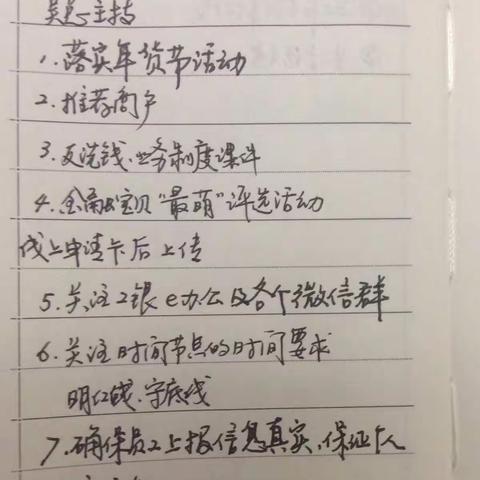 主持
1.落实年货节活动
2.推荐商户
3.反洗钱、业务制度课件
4.金融宝贝“最萌”评选活动
线上申请卡后上传
5.关注工银e办公及各个微信群
6.关注时间节点的时间要求
明红线、守底线
7.确保员工上报信息真实、保证个人